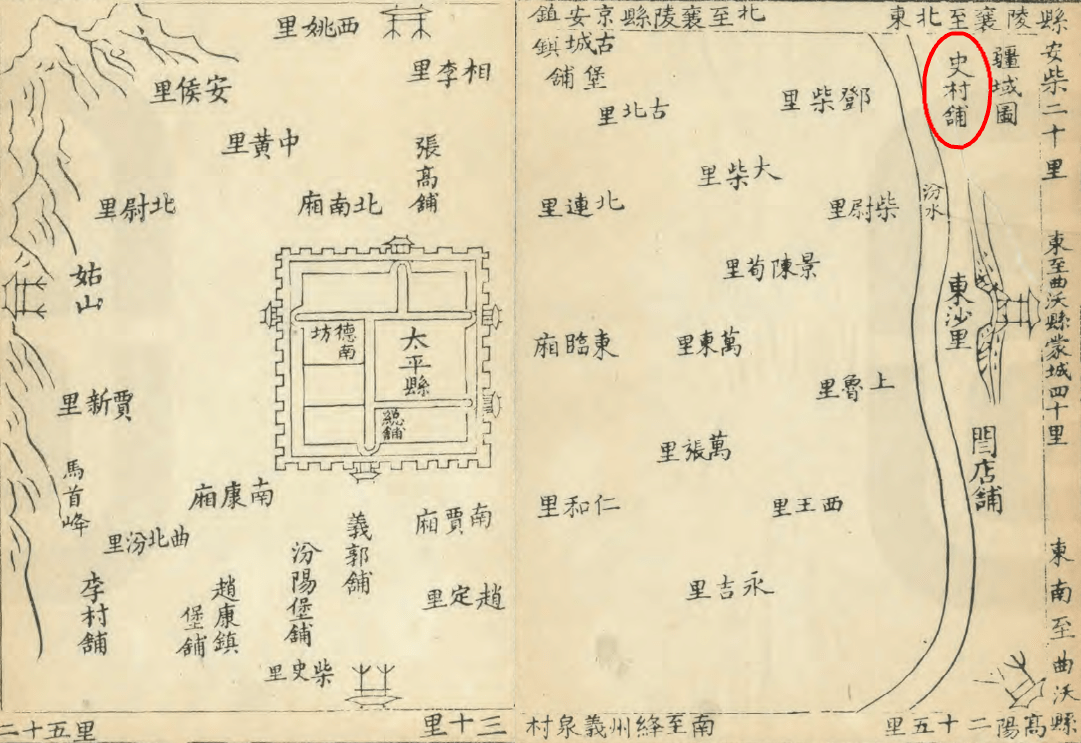 疆域圖
東北至襄陵縣
安柴二十里
東至曲沃縣蒙城四十里
東南至曲沃縣
高陽二十五里
史村舖
汾水
東沙里
閆店舖
北至襄陵縣京安鎮
古城鎮
堡舖
鄧柴里
古北里
大柴里
柴尉里
北連里
景陳荀里
萬東里
東臨廂
上魯里
萬張里
西王里
仁和里
永吉里
南至絳州義泉村
三十里
西姚里
相李里
安侯里
中黃里
張高舖
北南廂
北尉里
姑山
太平縣
德南坊
總舖
賈新里
馬首峰
南康廂
南賈廂
義郭舖
曲北汾里
汾陽堡舖
趙康鎮
堡舖
李村舖
趙定里
柴史里
二十五里